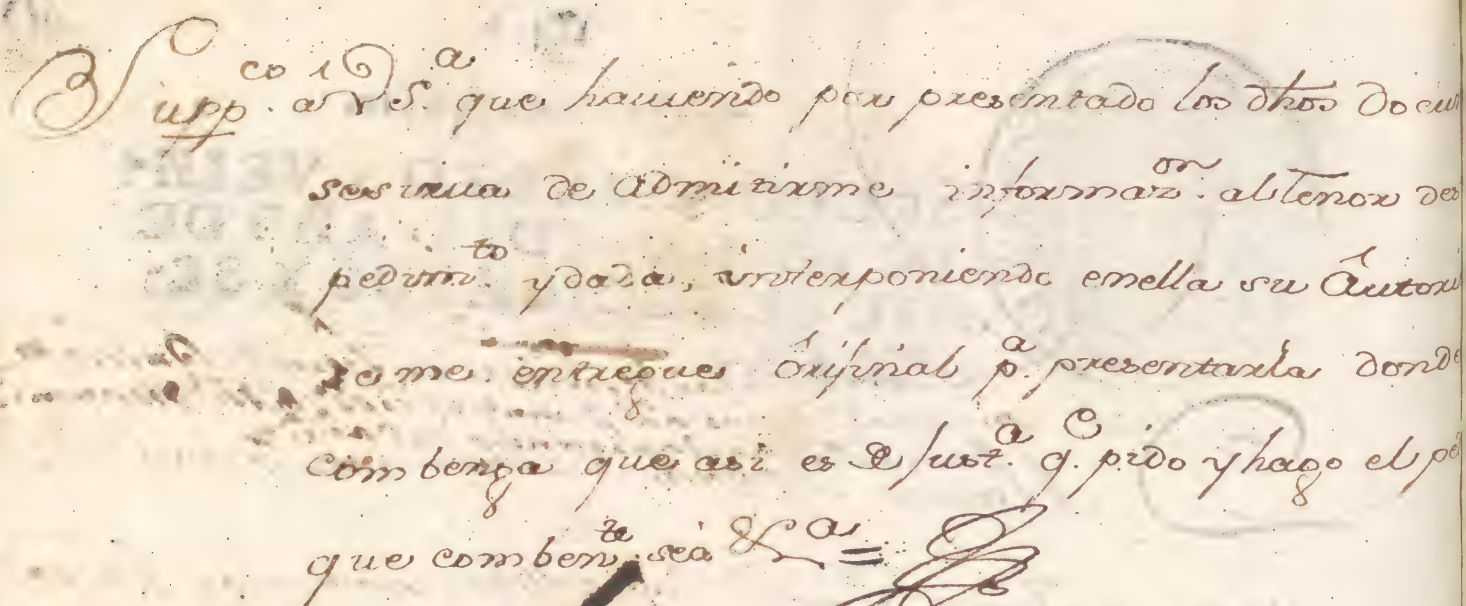 Supp.co a V S.a que hauiendo por presentado los dhos docum
se sirua de admitirme informaz.on al tenor des
pedim.to y dada, interponiendo en ella su Autori
se me entregue Orijinal p.a presentarla donde
combenga que asi es de Just.a q.e pido y hago el pe
que comben.te sea &.a =